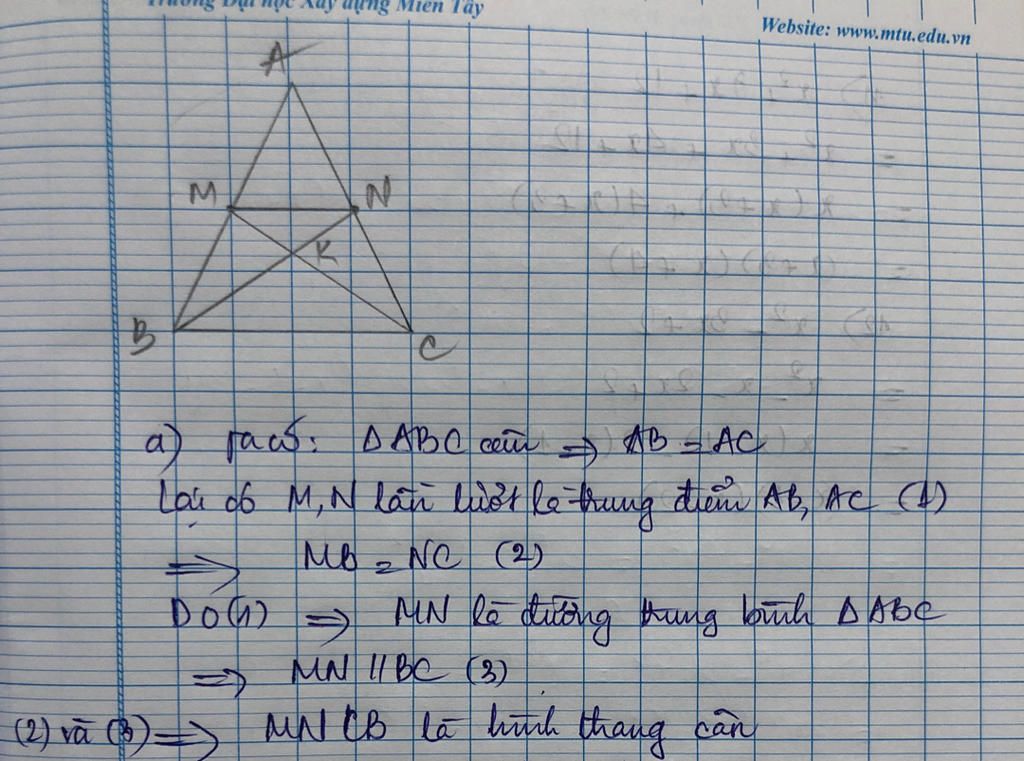 Trường Đại học Xây dựng Miền Tây
Website: www.mtu.edu.vn
A
M N
K
B C
a) Ta có: ΔABC cân => AB = AC
Lại có M, N lần lượt là trung điểm AB, AC (1)
=> MB = NC (2)
DO (1) => MN là đường trung bình ΔABC
=> MN // BC (3)
(2) và (3) => MNCB là hình thang cân